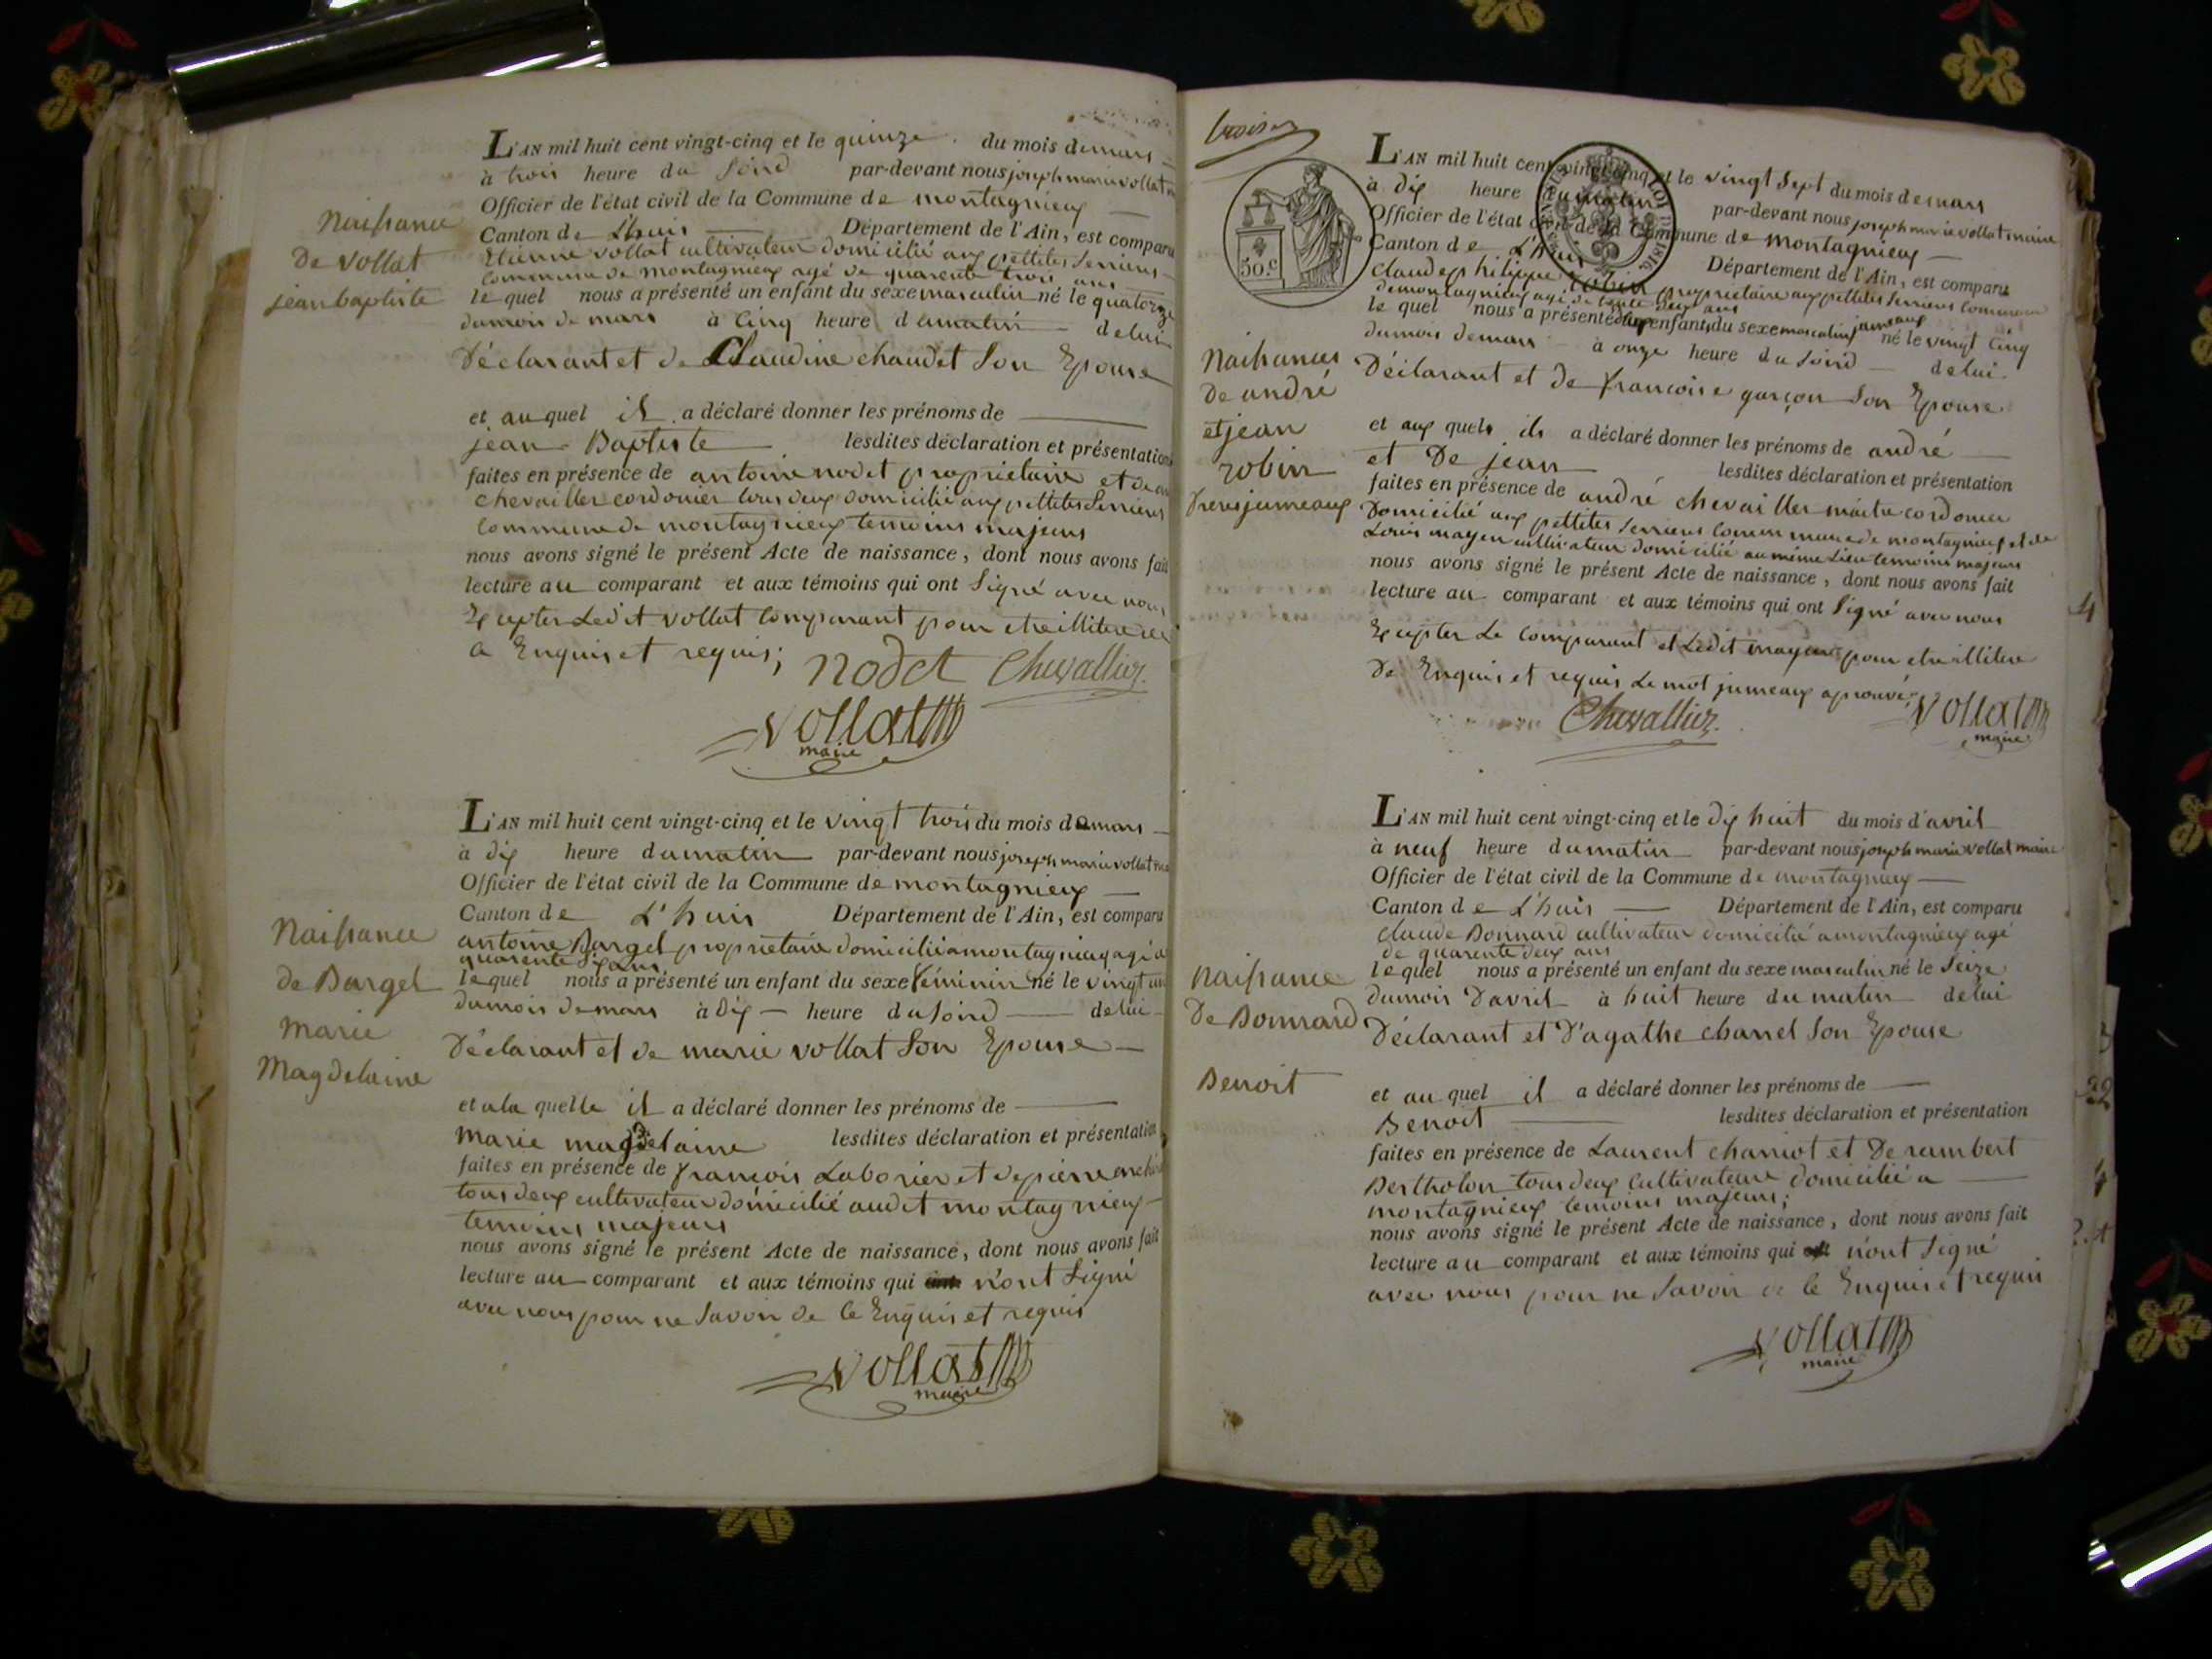 L'AN mil huit cent vingt-cinq et le quinze du mois de mars
à trois heure du soird par-devant nous joseph marie vollat
Officier de l'état civil de la Commune de montagnieux
Canton de L'huis Département de l'Ain, est comparu
Etienne vollat cultivateur domicilié aux pettites Serrieres
commune de montagnieux agé de quarente trois ans
le quel nous a présenté un enfant du sexe masculin né le quatorze
du mois de mars à cinq heure du matin de lui
Déclarant et de Claudine chaudet Son Epouse
et au quel il a déclaré donner les prénoms de
jean Baptiste lesdites déclaration et présentation
faites en présence de antoine nodet proprietaire et de
chevailler cordonier tous deux domicilié aux pettites Serrieres
commune de montagnieux temoins majeurs
nous avons signé le présent Acte de naissance, dont nous avons fait
lecture au comparant et aux témoins qui ont Signé avec nous
Excepter Ledit vollat comparant pour etre illitere de
ce Enquis et requis;
Nodet Chevallier
vollat
maire
Naissance
De vollat
jean baptiste
L'AN mil huit cent vingt-cinq et le vingt trois du mois de mars
à dix heure du matin par-devant nous joseph marie vollat
Officier de l'état civil de la Commune de montagnieux
Canton de L'huis Département de l'Ain, est comparu
antoine Dargel proprietaire domicilié a montagnieux agé de
quarente six ans
le quel nous a présenté un enfant du sexe féminin né le vingt un
du mois de mars à dix heure du soird de lui
Déclarant et de marie vollat Son Epouse
et a la quelle il a déclaré donner les prénoms de
Marie magdelaine lesdites déclaration et présentation
faites en présence de françois Laborier et de pierre
tous deux cultivateur domicilié audit montagnieux
temoins majeurs
nous avons signé le présent Acte de naissance, dont nous avons fait
lecture au comparant et aux témoins qui n'ont Signé
avec nous pour ne Savoir de le Enquis et requis
vollat
maire
Naissance
de Dargel
marie
Magdelaine
troisr
50.c
L'AN mil huit cent vingt-cinq et le vingt Sept du mois de mars
à dix heure du matin par-devant nous joseph marie vollat maire
Officier de l'état civil de la Commune de montagnieux
Canton de L'huis Département de l'Ain, est comparu
claude philippe robin proprietaire aux pettites Serrieres commune
de montagnieux agé de trente deux ans
le quel nous a présenté deux enfants du sexe masculin jumeaux né le vingt cinq
du mois de mars à onze heure du soird de lui
Déclarant et de francoise garçon Son Epouse
et aux quels ils a déclaré donner les prénoms de andré
et De jean lesdites déclaration et présentation
faites en présence de andré chevailler maitre cordonier
Domicilié aux pettites Serrieres commune de montagnieux et de
Louis mayen cultivateur domicilié au même Lieu temoins majeurs
nous avons signé le présent Acte de naissance, dont nous avons fait
lecture au comparant et aux témoins qui ont Signé avec nous
Excepter Le comparant et Ledit mayen pour etre illitere
De Enquis et requis Le mot jumeaux aprouvé;
Chevallier
vollat
maire
Naissances
De andré
et jean
robin
freres jumeaux
L'AN mil huit cent vingt-cinq et le dix huit du mois d'avril
à neuf heure du matin par-devant nous joseph marie vollat maire
Officier de l'état civil de la Commune de montagnieux
Canton de L'huis Département de l'Ain, est comparu
claude Bonnard cultivateur domicilié a montagnieux agé
de quarente deux ans
le quel nous a présenté un enfant du sexe masculin né le Seize
du mois D'avril à huit heure du matin de lui
Déclarant et D'agathe charrel Son Epouse
et au quel il a déclaré donner les prénoms de
Benoit lesdites déclaration et présentation
faites en présence de Laurent charriot et De rambert
Bertholon tous deux cultivateur domicilié a
montagnieux temoins majeurs;
nous avons signé le présent Acte de naissance, dont nous avons fait
lecture au comparant et aux témoins qui n'ont Signé
avec nous pour ne Savoir de le Enquis et requis
vollat
maire
Naissance
De Bonnard
Benoit